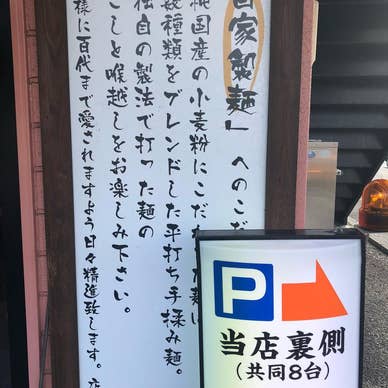 自家製麺」へのこだ
純国産の小麦粉にこだわ
数種類をブレンドした平打ち手揉み麺。
独自の製法で打った麺の
こしと喉越しをお楽しみ下さい。
様に百代まで愛されますよう日々精進致します。店
P
当店裏側
(共同8台)